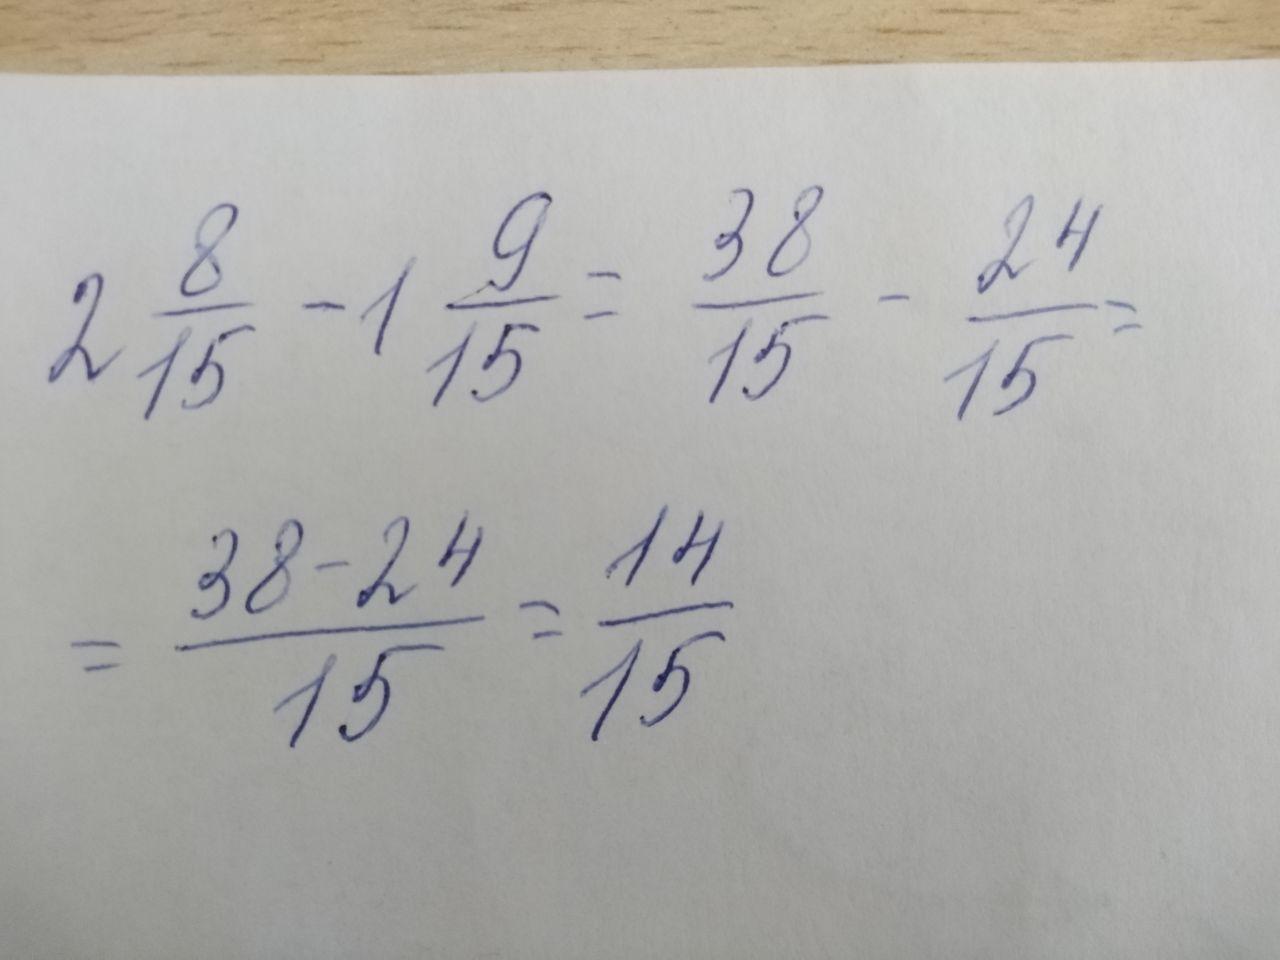 2 8/15 - 1 9/15 = 38/15 - 24/15 =
= 38-24/15 = 14/15